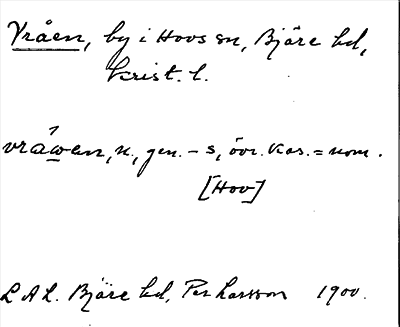 Vråen, by i Hovs sn, Bjäre hd,
Krist. l.
vrǻwen, n., gen. -s, övr. kas. = nom.
[Hov]
L A L. Bjäre hd, Per Larsson 1900.